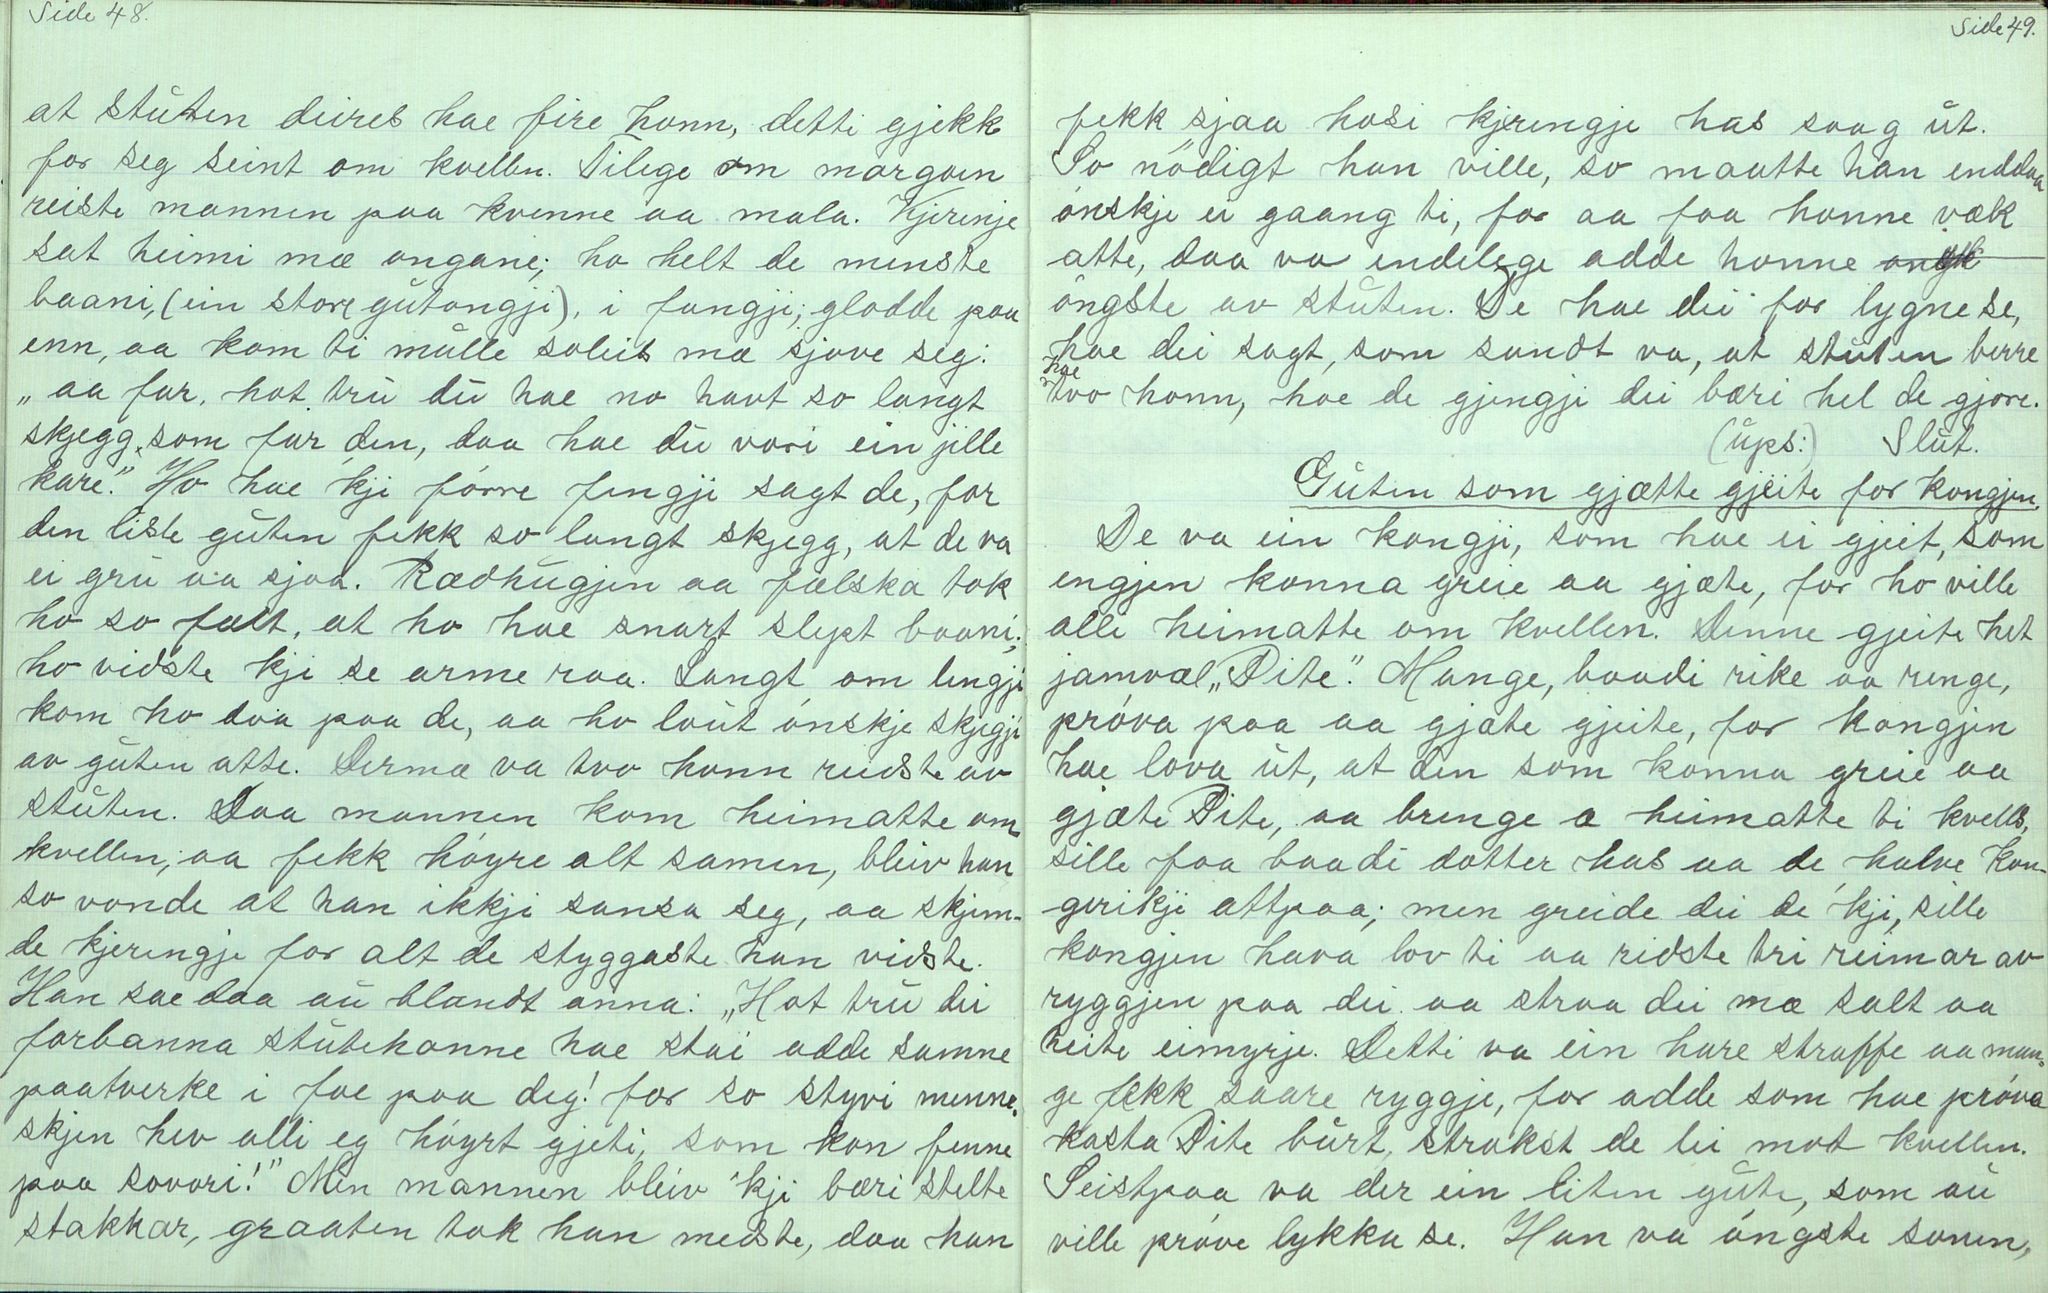 Side 48.
at stŭten deires hae fire honn, detti gjekk
for seg seint om kvellen. Tilege om morgoen
reiste mannen paa kvenne aa mala. Kjerinje
sat heimi mæ ongane; ho helt de minste
baani, (ein store gŭtongji), i fangji; glodde paa
enn, aa kom ti mŭlle soleis mæ sjøve seg:
„aa far, hot trŭ dŭ hae no havt so langt
skjegg, som far den, daa hae dŭ vori ein jille
kare." Ho hae 'kji fórre fengji sagt de, for
den liste gŭten fekk so langt skjegg, at de va
ei grŭ aa sjaa. Rædhŭgjen aa fælska tok
ho so fælt, at ho hae snart slept baani;
ho vidste kji se arme raa. Langt om lengji
kom ho daa paa de, aa ho loŭt ónskje skjegji
av gŭten atte. Dermæ va tvo honn reidste av
stŭten. Daa mannen kom heimatte om
kvellen, aa fekk hóyre alt samen, bleiv han
so vonde at han ikkji sansa seg, aa skjem-
de kjeringje for alt de styggaste han vidste.
Han sae daa aŭ blandt anna: „Hot trŭ dei
forbanna stŭtehonne hae stai adde samne
paatverke i fóe paa deg! for so styvi menne-
skjen hev alli eg hóyrt gjeti, som kan finne
paa sovori!" Men mannen bleiv 'kji bæri stelte
stakkar, graaten tok han medste, daa han
Side 49.
fekk sjaa hosi kjeringje has saag ŭt.
So nódigt han ville, so maatte han enddaa
ónskje ei gaang ti, for aa faa honne væk
atte, daa va endelege adde honne
óngste av stŭten. De hae dei for lygne se,
hae dei sagt, som sandt va, at stŭten berre
hae
tvo honn, hae de gjengji dei bæri hel de gjore.
(ŭps:) Slŭt.
Gŭten som gjætte gjeite for kongjen.
De va ein kongji, som hae ei gjeit, som
engjen konna greie aa gjæte, for ho ville
alli heimatte om kvellen. Denne gjeite het
jamvæl „Pite". Mange, baadi rike aa renge,
próva paa aa gjæte gjeite, for kongjen
hae lova ŭt, at den som konna greie aa
gjæte Pite, aa brenge a heimatte ti kvells,
sille faa baadi dotter has aa de halve kon-
gerikji attpaa; men greide dei de 'kji, sille
kongjen hava lov ti aa ridste tri reimar av
ryggjen paa dei aa straa dei mæ salt aa
heite eimyrje. Detti va ein hare straffe aa man-
ge fekk saare ryggje, for adde som hae próva
kasta Pite bŭrt, strakst de lei mot kvellen.
Seistpaa va der ein liten gŭte, som aŭ
ville próve lykka se. Han va óngste sonen,